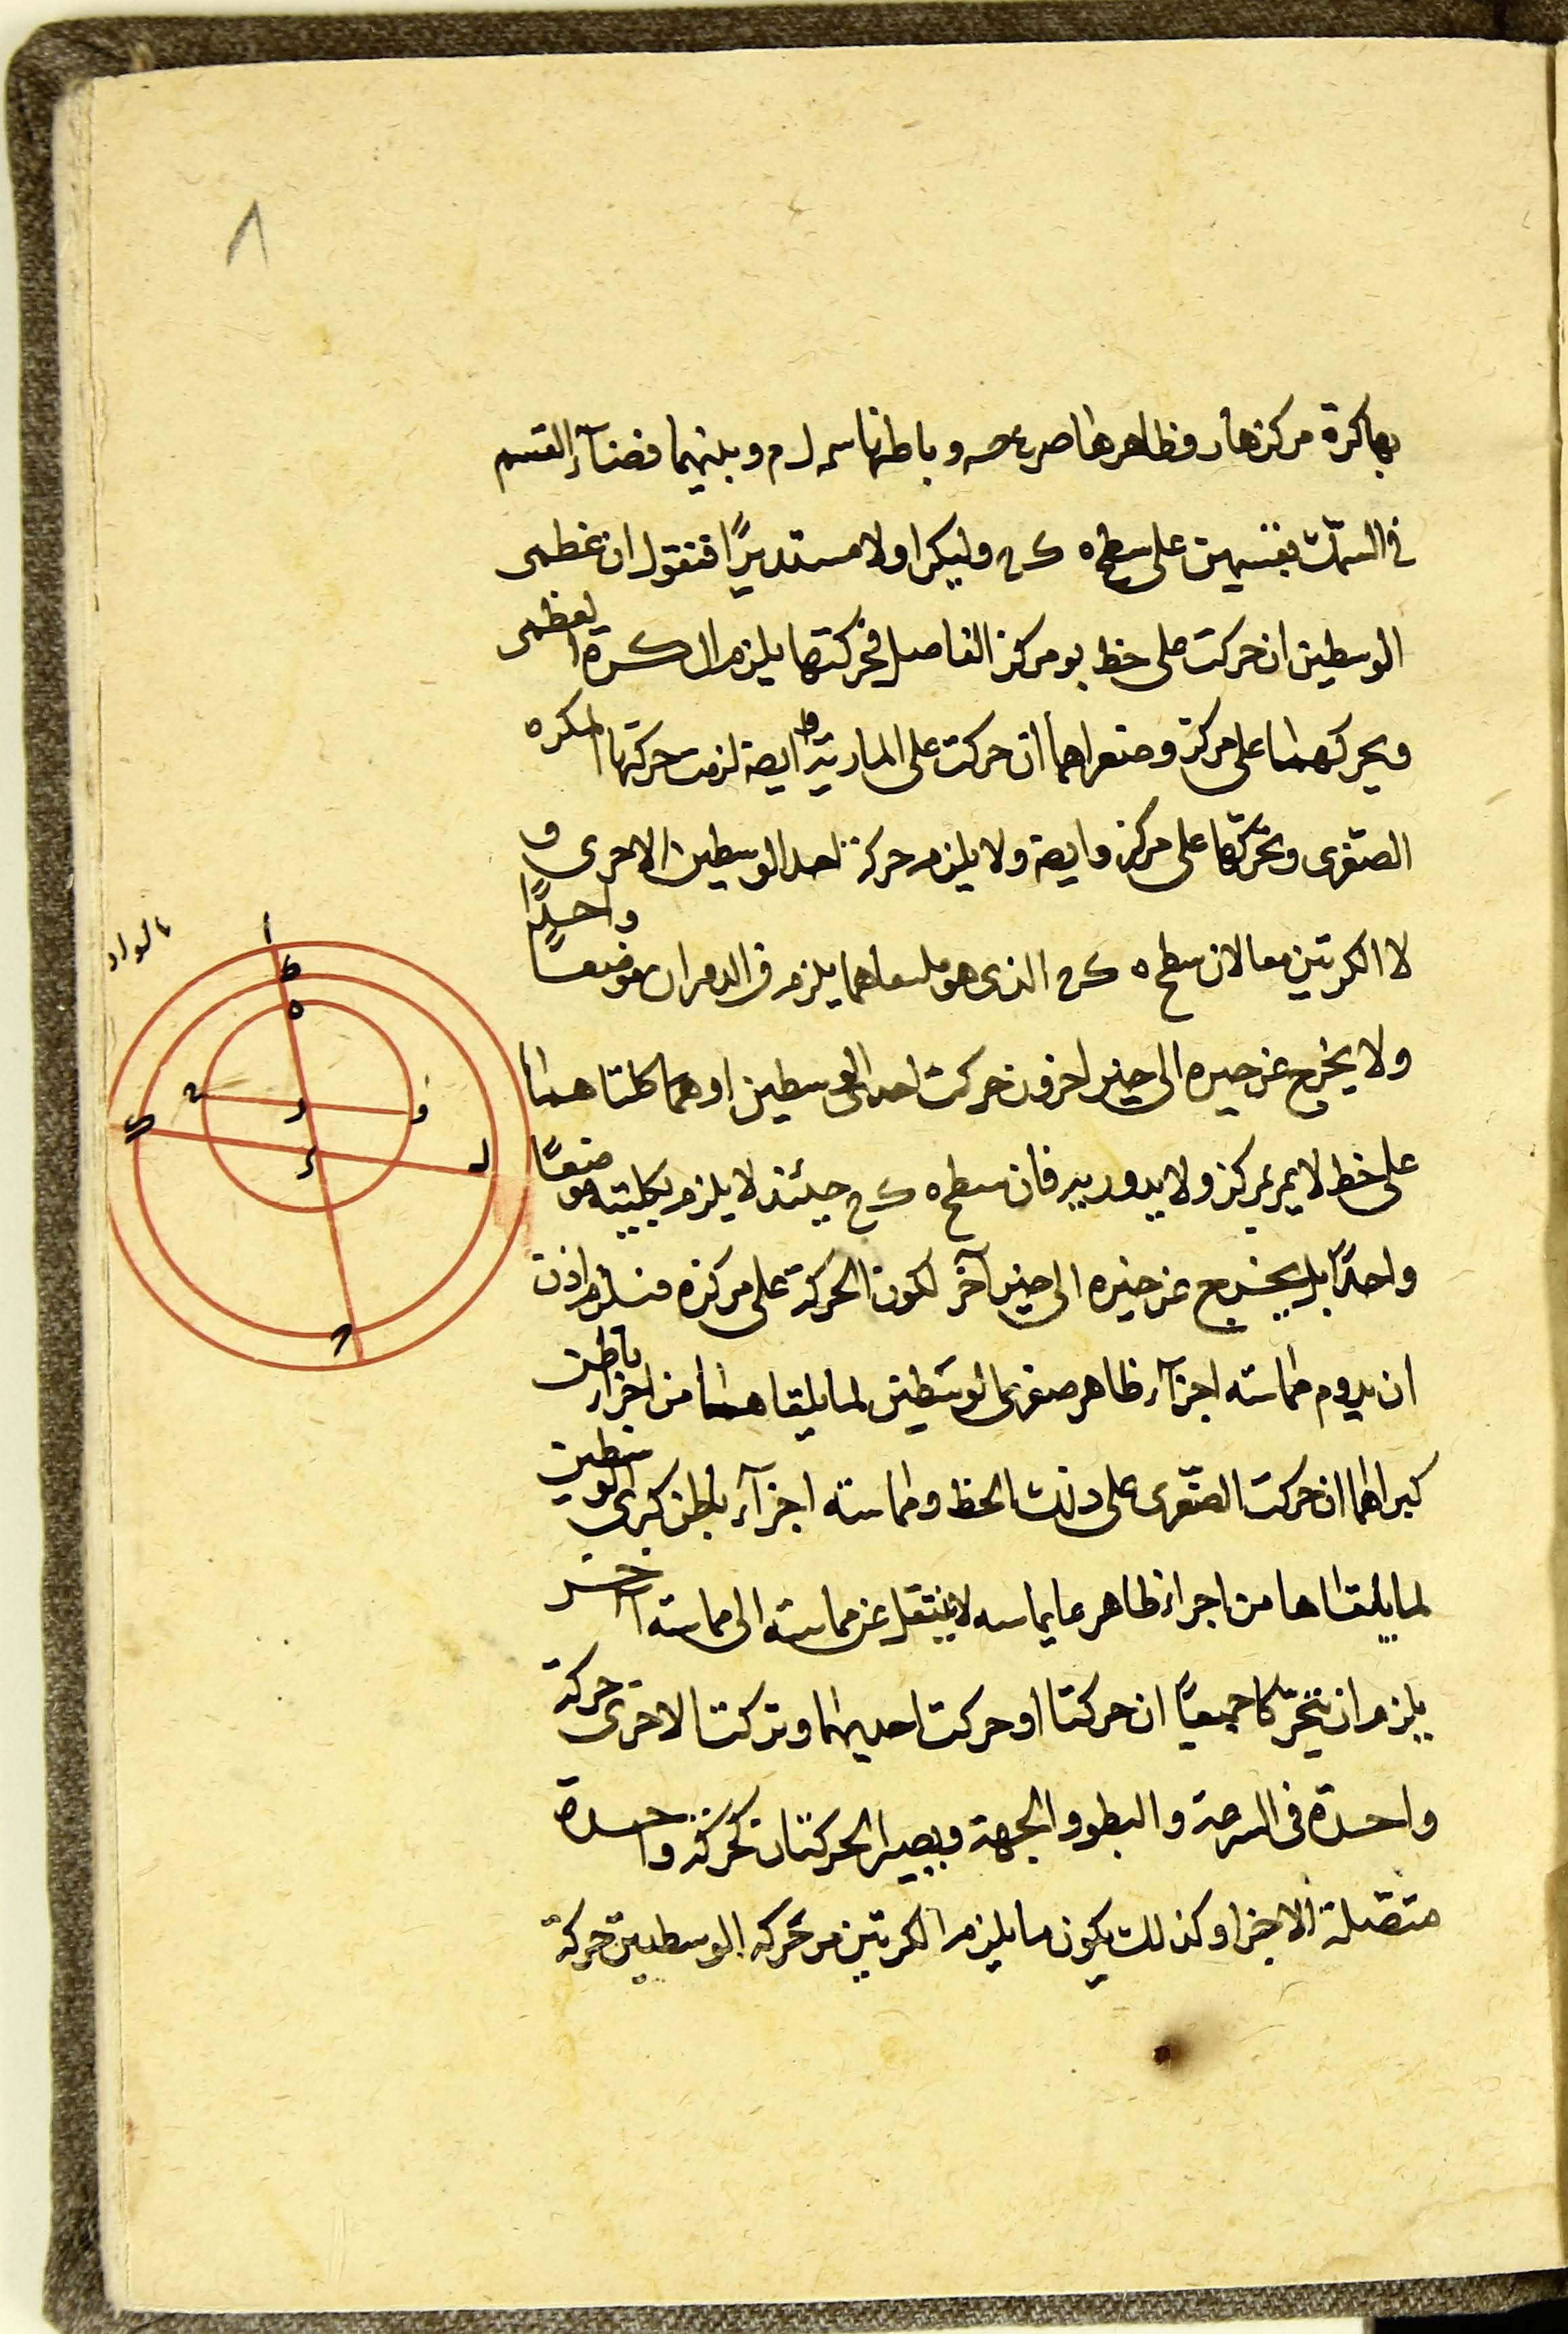 ٨
بها كرة مركزها ر وظاهرها وباطنها ل م وبينهما فضاء القسم
في السمك بقسمين على سطح ه ك ح وليكن اولا مستديرًا فنقول ان عظمى
الوسطين ان حركت على خط بو مركز الفاصل فحركتها يلزم الكرة العظمى
ويحركهما على مركز وصغراهما ان حركت على المار بـ ايضة لزمت حركتها الكره
الصغرى وتحركها على مركز و ايضة ولا يلزم حركة احد الوسطين الاخرى و
لا الكرتين معا لان سطح ه ك ح الذى هو ملتقاهما يلزم فى الدوران موضعًا واحدًا
ولا يخرج عن حيزه الى حيز اخر وان حركت احد الوسطين او هما كلتاهما
على خط لا يمر بمركز ولا يدور به فان سطح ه ك ح حينئذ لا يلزم بكليته موضعًا
واحدًا بل يخرج عن حيزه الى حيز آخر لكون الحركة على مركزه فيلزم اذن
ان يدوم مماسته اجزآء ظاهر صغرى الوسطين لما يلقاها من اجزاء باطن
كبراهما ان حركت الصغرى على ذلك الخط ومماسته اجزآء باطن كبرى الوسطين
لما يلقاها من اجزاء ظاهر ما يماسه لا ينتقل عن مماسته الى مماسته اخر
يلزم ان يتحركا جميعًا ان حركتا او حركت احديهما وتركت الاخرى حركة
واحدة فى السرعة والبطو والجهة ويصير الحركتان كحركة واحدة
متصلة الاجزا وكذلك يكون ما يلزم الكرتين من حركه الوسطيين حركة
ا
ط
ه
ح
ر
و
ك
د
ل
م